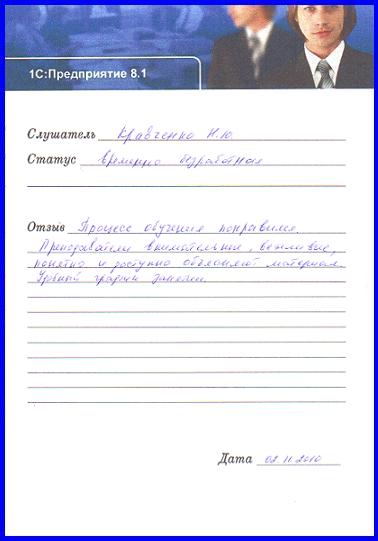 1С:Предприятие 8.1
Слушатель Кравченко Н.Ю.
Статус временно безработная
Отзыв Процесс обучения понравился.
Преподаватели внимательные, вежливые,
понятно и доступно объясняют материал.
Удобный график занятий.
Дата 02.11.2010